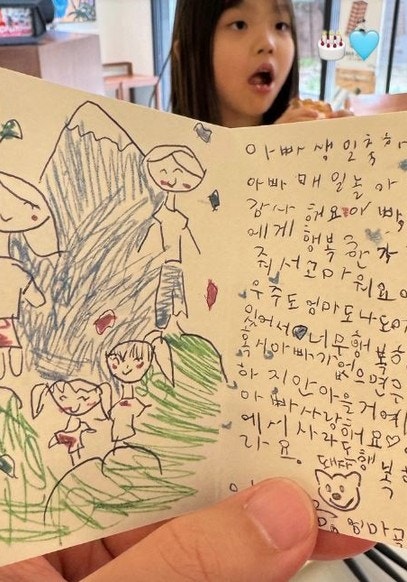 아빠 생일축하
아빠 매일놀아
감사해요아빠
에게 행복한
줘서고마워요
우주도엄마도나도
있어서너무행복
혹시아빠가없으면우
하지안아을거예
아빠사랑해요♡
에서사랑해
라요.
행복
엄마